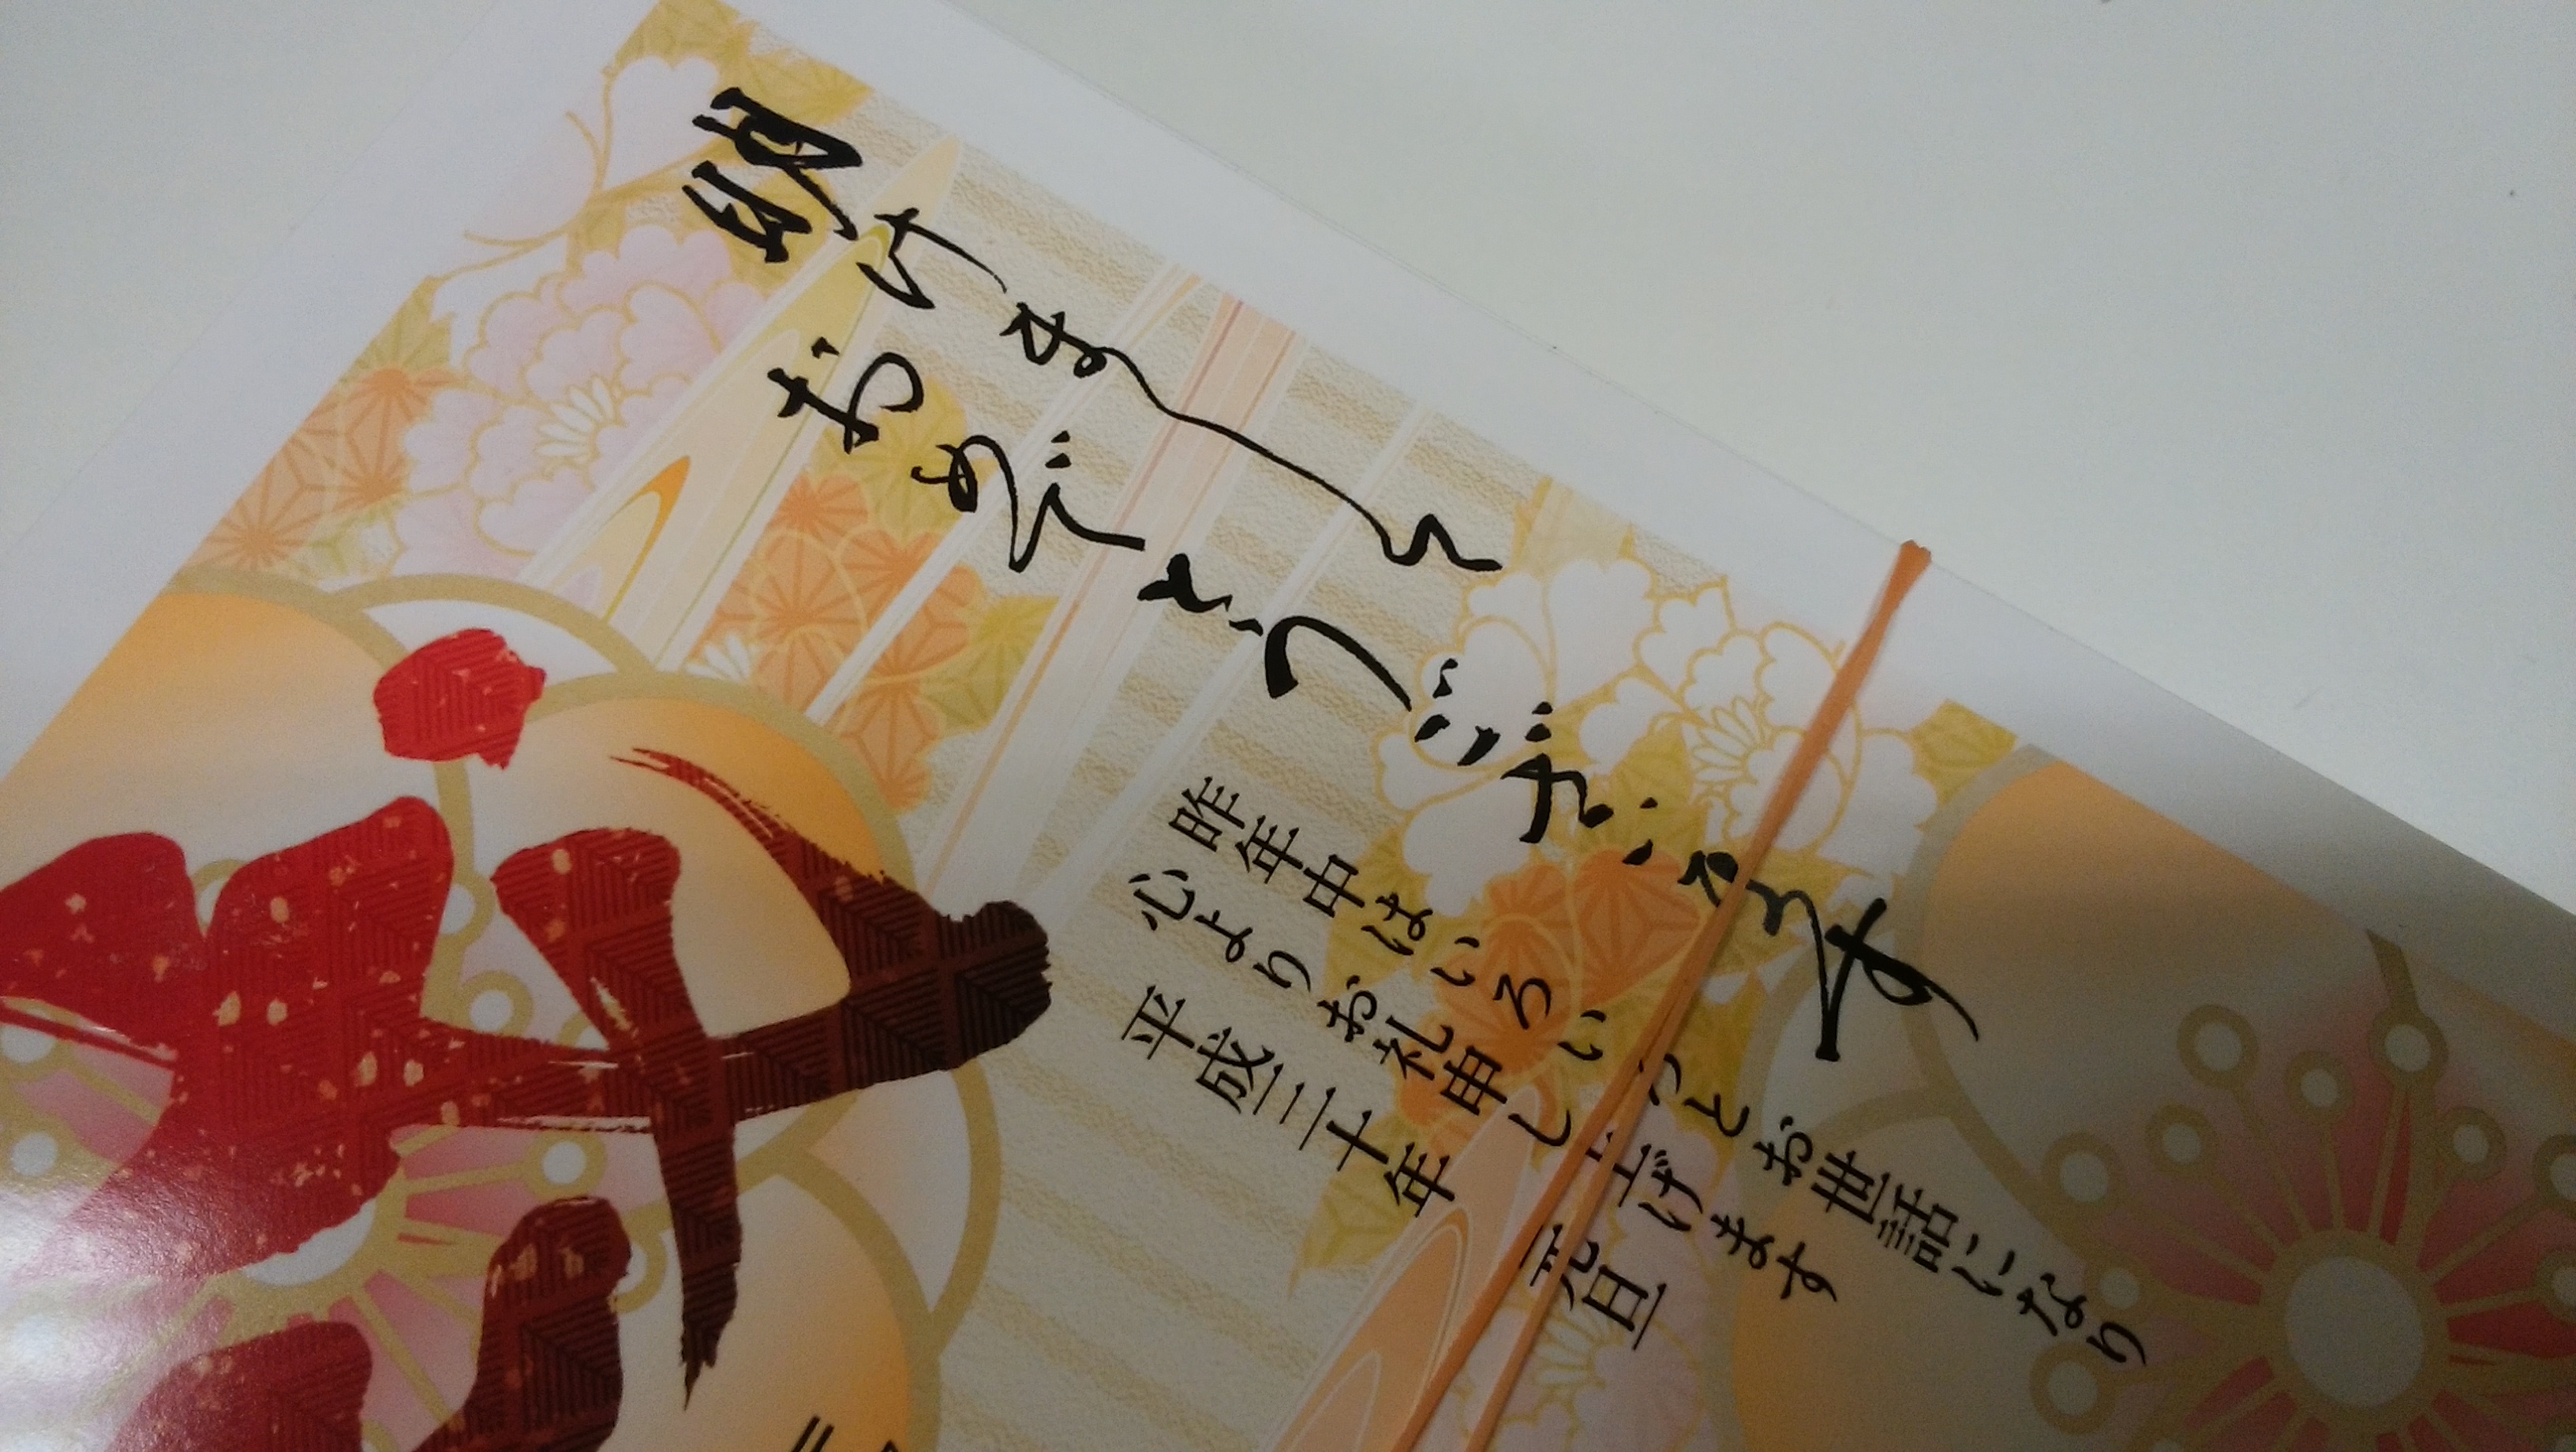 明けまして
おめでとうございます
昨年中はいろいろとお世話になり
心よりお礼申し上げます
平成三十年 元旦